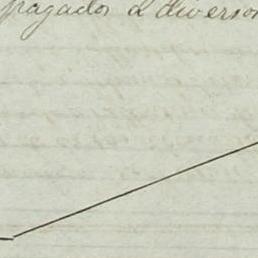 pagados a diversos